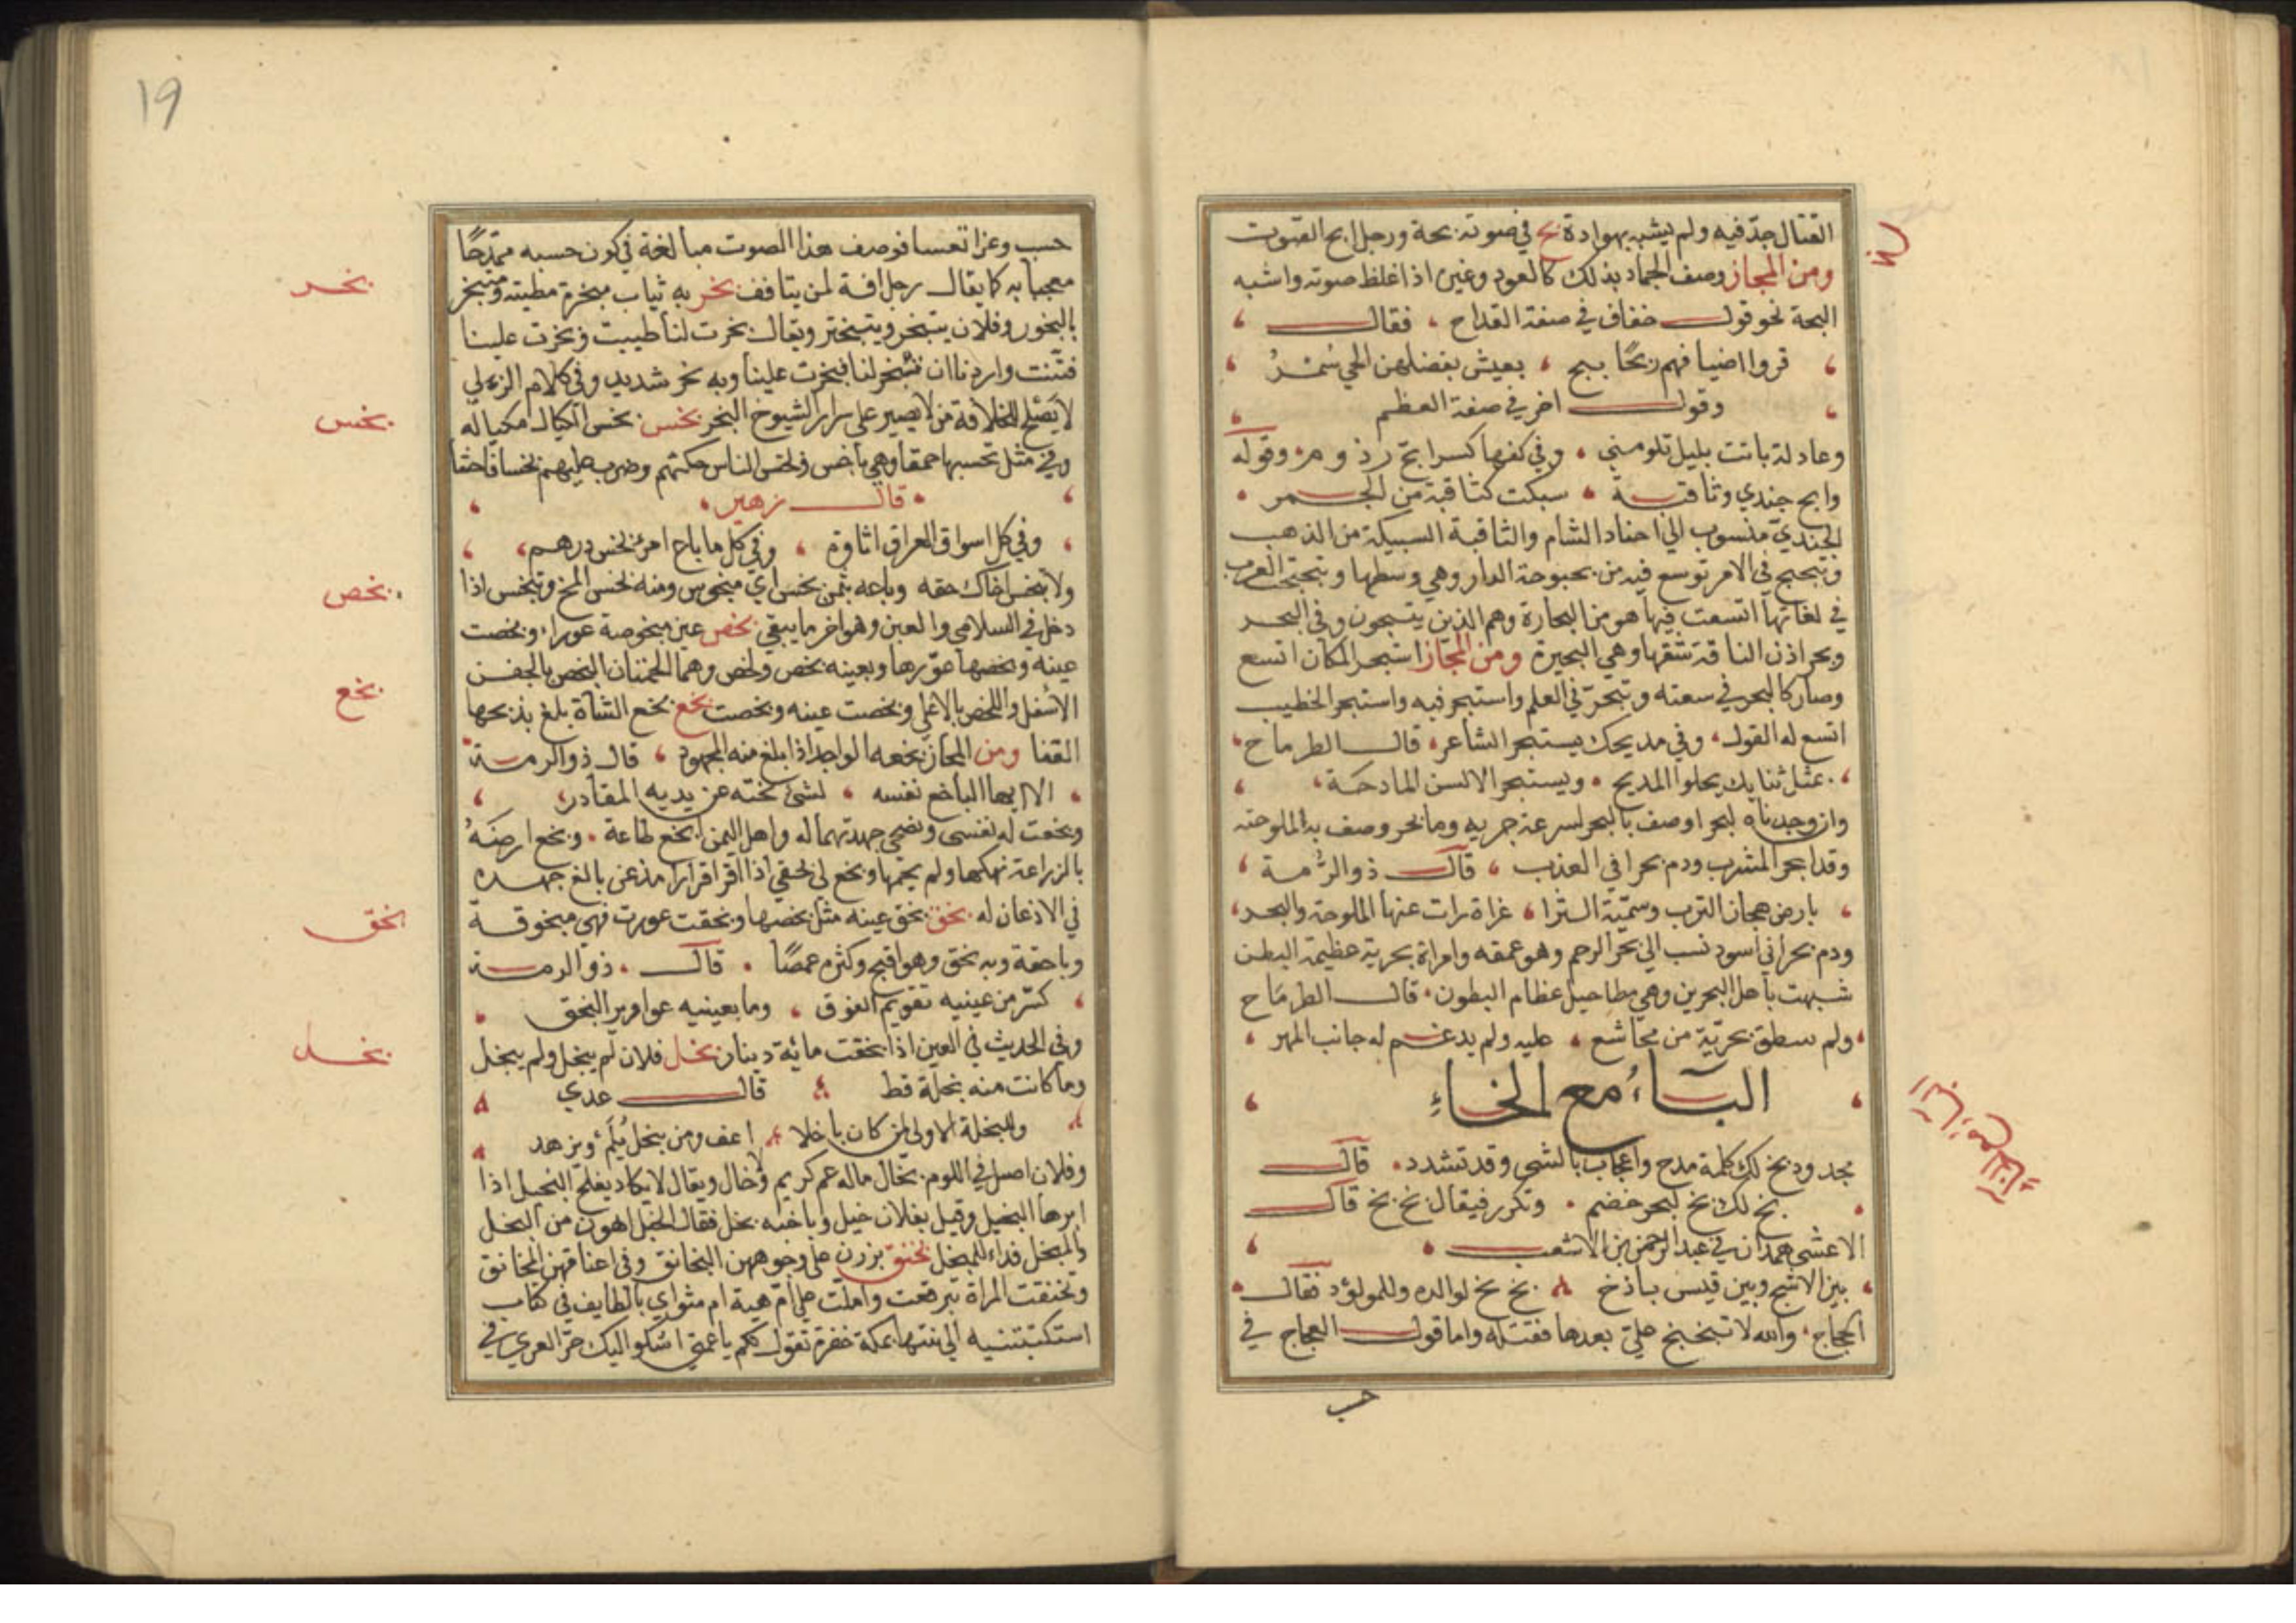 القتال جدّ فيه ولم يشبه بهوادة بح في صوته بحة ورجل ابح الصّوت
ومن المجاز وصف الجماد بذلك كالعود وغيره اذا غلظ صوته واشبه
البحة نحو قول خفاف في صفة القداح فقال
قروا اضيافهم ربحًا ببح بعيش بفضلهن الحي سُمْرُ
وقول اخر في صفة العظم
وعاذلة باتت بليل تلومني وفي كفها كسرا بح رذوم وقوله
وابح جندي وثاقبة سبكت كثاقبة من الجمر
الجنديّ منسوب الي اجناد الشام والثاقبة السبيكة من الذهب
وتبحبح في الامر توسع فيه من بحبوحة الدار وهي وسطها وتبحبحت العرب
في لغاتها اتسعت فيها هو من البحارة وهم الذين يتبحرون وفي البحر
وبحر اذن الناقة شقها وهي البحيرة ومن المجاز استبحر المكان اتسع
وصار كالبحر في سعته وتبحرّ في العلم واستبحر فيه واستبحر الخطيب
اتسع له القول وفي مديحك يستبحر الشاعر قال الطرماح
بمثل ثنايك يحلوا المديح ويستبحر الالسن المادحة
وان وجدناه لبحر اوصف بالبحر لسرعة جريه وما بحر وصف به الملوحته
وقد ابحر المشرب ودم بحرا في العذب قال ذو الرُّمة
بارض هجان الترب وسميّة الثرا غزاة رات عنها الملوحة والبحر
ودم بحراني اسود نسب الي بحر الرحم وهو عمقه وامراة بحرية عظيمة البطن
شبهت باهل البحرين وهي مطاحيل عظام البطون قال الطرمّاح
ولم سطق بحريّة من مجاشع عليه ولم يدعم له جانب المهر
البَآءُ مع الخآءِ
مجدود بخ لك كلمة مدح واعجاب بالشي وقد تشدد قال
بخ لك بخ لبحر خضم وتكرر فيقال بخ بخ قال
الاعشي همدان في عبد الرحمن بن الاشعب
بين الاشج وبين قيس باذخ بخ بخ لوالده وللمولود فقال
الحجاج والله لا تبخبخ علي بعدها فقتله واما قول العجاج في
حسب
19
حسب وعزا تعسا فوصف هذا الصوت مبالغة في كون حسبه ممتدحًا
معجبا به كما يقال رجل افة لمن يتافف بخر به ثياب مبخرة مطيته ومتبخر
بخر
بالبخور وفلان يتبخر ويتبختر ويقال بخرت لنا طيبت وبخرت علينا
فتنت واردنا ان تبخر لنا فبخرت علينا وبه بخر شديد وفي كلام الزولي
لا يَصْلح للخلافة من لا يصبر علي سرار الشيوخ البخر بخس بخس الكيال مكياله
بخس
وفي مثل تحسبها حمقا وهي باخس وبخس الناس حكتهم وضرب عليهم بخسا فاحشا
قال زهير
وفي كل اسواق العراق اتاوة وفي كل ما باع امرئ بخس درهم
ولا بخس اخاك حقه وباعه بثمن بخس اي مبخوس ومنه بخس المخ وتبخس اذا
بخص
دخل في السلامي والعين وهو اخر ما يبقي بخص عين مبخوصة عورا وبخصت
عينه وبخصها عوّرها وبعينه بخص ولخص وهما لحمتان البخص بالجفن
الاسفل واللخص بالاعلي وبخصت عينه وبخصت بخع بخع الشاة بلغ بذبحها
بخع
القفا ومن المجاز بخعه الواجد اذا بلغ منه المجهود قال ذو الرمة
الا ايها الباخع نفسه لشئ نحته عن يديه المقادر
وبخعت له نفسي ونصحي جهدتهما له واهل اليمن ابخع طاعة وبخع ارضَهُ
بالزراعة نهكها ولم يجمها وبخع لي بحقي اذا اقر اقرارا مذعن بالغ جهده
في الاذعان له بخق بخق عينه مثل بخصها وبخقت عورت فهي مبخوقة
بخق
وباخقة وبه بخق وهو اقبح وكثره عمصًا قال ذو الرمة
كسّر من عينيه تقويم الفوق وما بعينيه عواوير البخق
وفي الحديث في العين اذا بخقت مائة دينار بخل فلان لم يبخل ولم يبخل
بخل
وما كانت منه بخلة قط قال عدي
وللبخلة الاولي لمن كان باخلا اعف ومن يبخل يُلَمْ ويزهد
وفلان اصيل في اللوم بخال ماله عم كريم ولا خال ويقال لا يكاد يفلح البخيل اذا
ابرها البخيل وقيل بفلان خبل وباخيه بخل فقال الخبل اهون من البخل
والمبخل فداء للمبخل بخنق برزن علي وجوههن البخانق وفي اعناقهن المخانق
وتخنقت المراة تبرقعت واملت علي امّ هيبة ام مثواي بالطايف في كتاب
استكتبتنيه الي بنتها بمكة خفرة تقول لكم يا عمتي اشكو اليك حر العري في